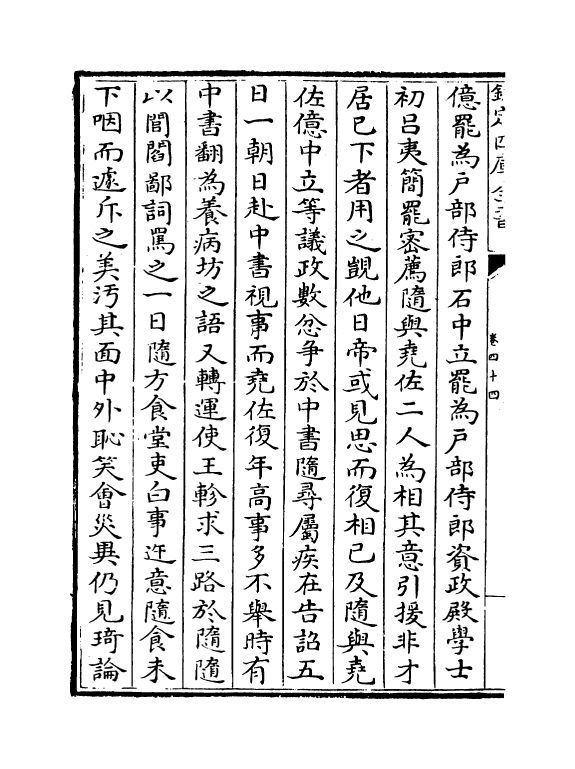 欽定四庫全書
卷四十四
億罷為户部侍郎石中立罷為户部侍郎資政殿學士
初吕夷簡罷宻薦隨與堯佐二人為相其意引援非才
居已下者用之覬他日帝或見思而復相已及隨與堯
佐億中立等議政數忿争於中書隨尋屬疾在告詔五
日一朝日赴中書視事而堯佐復年高事多不舉時有
中書翻為養病坊之語又轉運使王軫求三路於隨隨
以閭閻鄙詞罵之一日隨方食堂吏白事迕意隨食未
下咽而遽斥之羙汚其面中外恥笑會災異仍見琦論